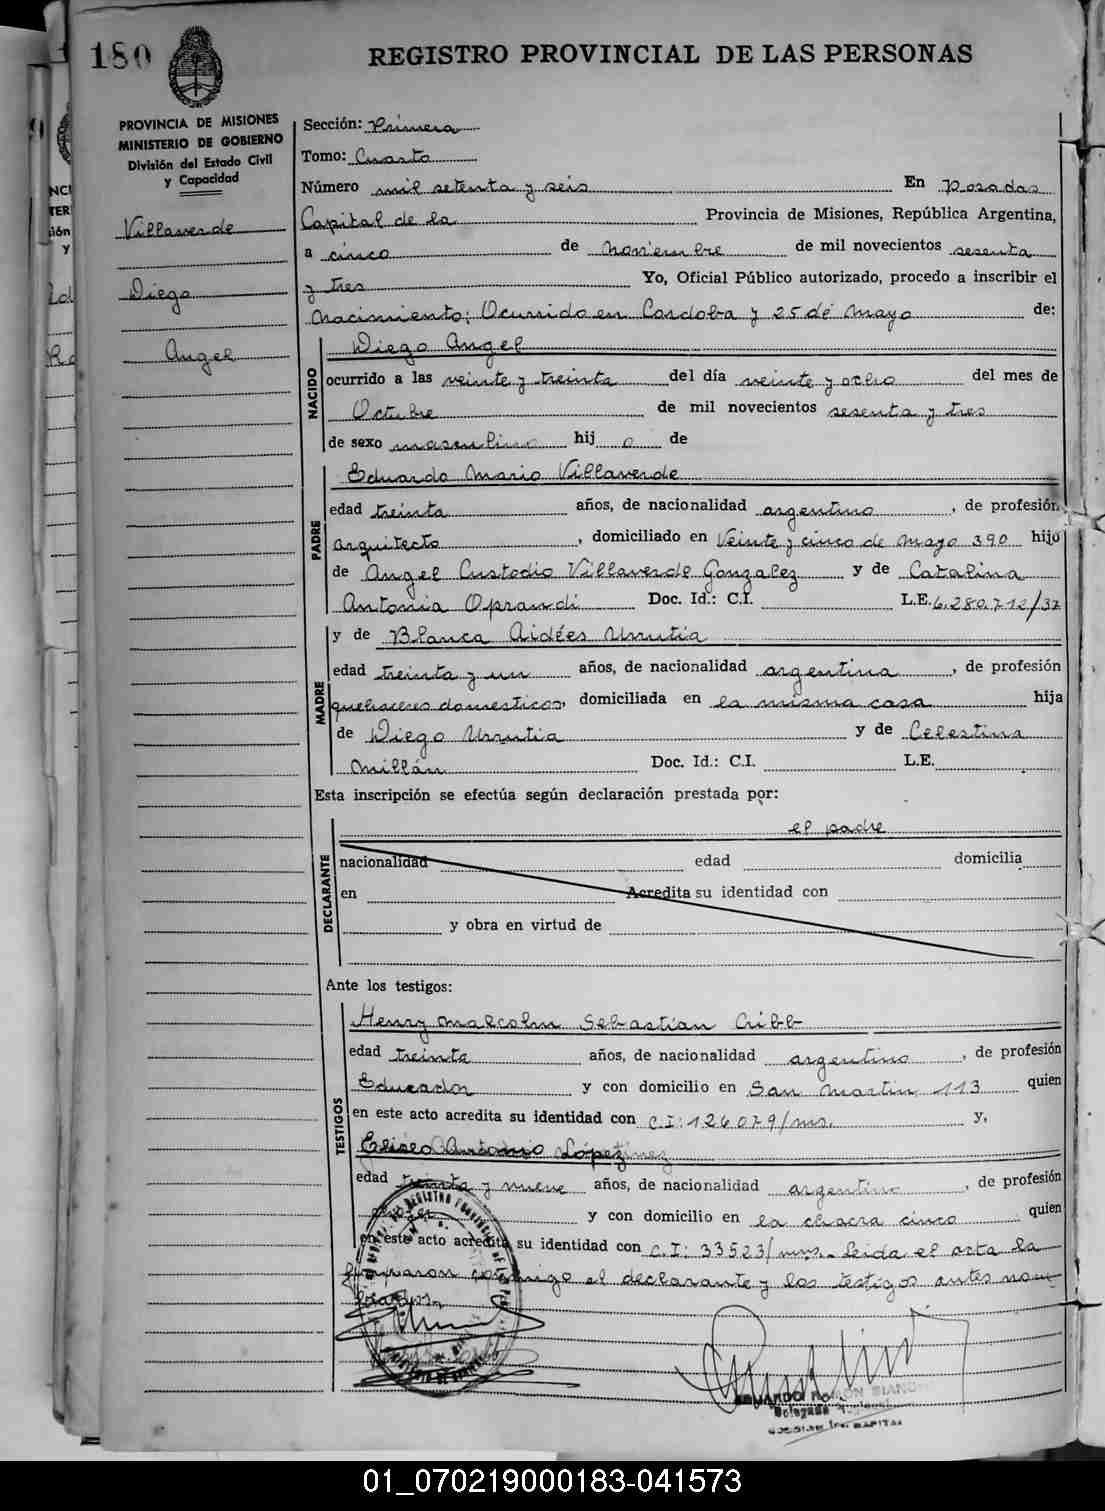 180
REGISTRO PROVINCIAL DE LAS PERSONAS
PROVINCIA DE MISIONES
MINISTERIO DE GOBIERNO
División del Estado Civil
y Capacidad
Villaverde
Diego
Angel
Sección: Primera
Tomo: Cuarto
Número mil setenta y seis En Posadas
Capital de la Provincia de Misiones, República Argentina,
a cinco de noviembre de mil novecientos sesenta
y tres Yo, Oficial Público autorizado, procedo a inscribir el
nacimiento; Ocurrido en Cordoba y 25 de Mayo de:
NACIDO
Diego Angel
ocurrido a las veinte y treinta del día veinte y ocho del mes de
Octubre de mil novecientos sesenta y tres
de sexo masculino hij o de
PADRE
Eduardo Mario Villaverde
edad treinta años, de nacionalidad argentino, de profesión
arquitecto, domiciliado en Veinte y cinco de Mayo 390 hijo
de Angel Custodio Villaverde Gonzalez y de Catalina
Antonia Oprandi Doc. Id.: C.I. L.E. 6.280.712/37
MADRE
y de Blanca Aidées Urrutia
edad treinta y un años, de nacionalidad argentina, de profesión
quehaceres domesticos, domiciliada en la misma casa hija
de Diego Urrutia y de Celestina
Millán Doc. Id.: C.I. L.E.
Esta inscripción se efectúa según declaración prestada por:
DECLARANTE
el padre
nacionalidad edad domicilia
en Acredita su identidad con
y obra en virtud de
Ante los testigos:
TESTIGOS
Henry Malcolm Sebastian Cribb
edad treinta años, de nacionalidad argentino, de profesión
Educador y con domicilio en San Martin 113 quien
en este acto acredita su identidad con C.I: 126079/ms. y,
Eliseo Antonio López
edad treinta y nueve años, de nacionalidad argentino, de profesión
chofer y con domicilio en la chacra cinco quien
en este acto acredita su identidad con C.I: 33523/mns. Leida el acta la
firmaron conmigo el declarante y los testigos antes nom
brados.
EDUARDO RAMÓN BIANCHI
01_070219000183-041573